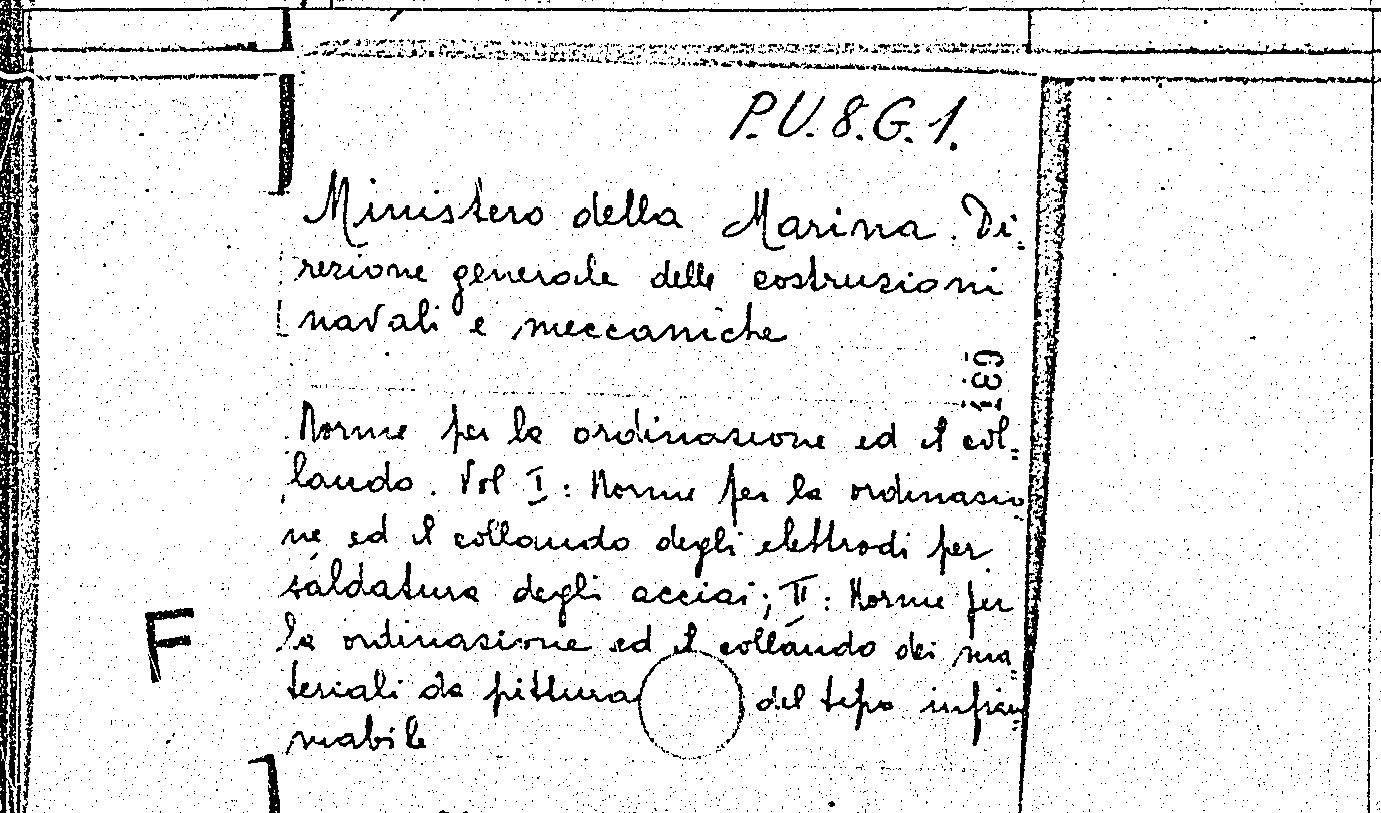 P.U.8.G.1.
Ministero della Marina. Di=
rezione generale delle costruzioni
navali e meccaniche
Norme per la ordinazione ed il col=
laudo. Vol I: Norme per la ordinazio
ne ed il collaudo degli elettrodi per
saldatura degli acciai; II: Norme per
la ordinazione ed il collaudo dei ma=
teriali da pittura del tipo infiam=
mabile
F